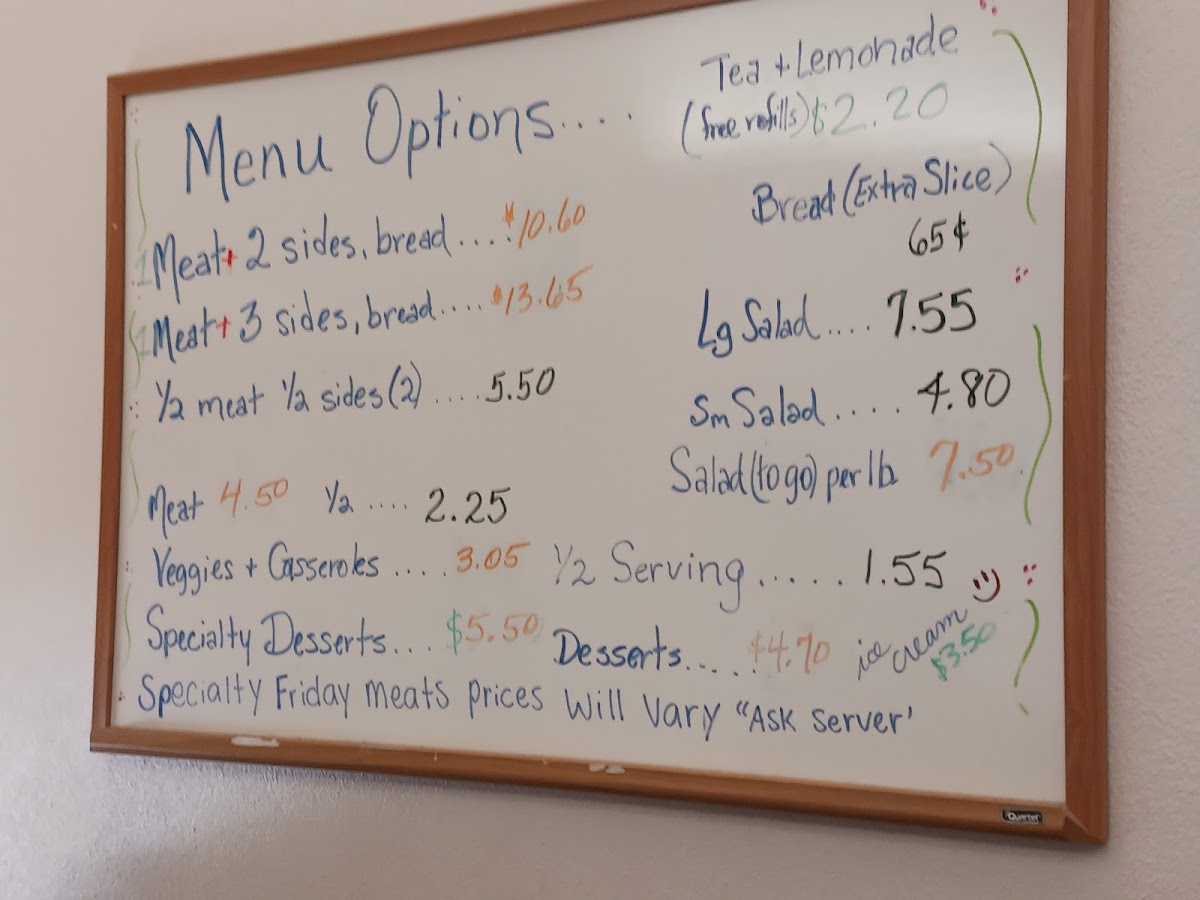 Menu Options....
1 Meat + 2 sides, bread .... $10.60
1 Meat + 3 sides, bread .... $13.65
1/2 meat 1/2 sides (2) .... 5.50
Meat 4.50 1/2 .... 2.25
Veggies + Casseroles .... 3.05 1/2 Serving ..... 1.55
Specialty Desserts... $5.50 Desserts..... $4.70 ice cream $3.50
Specialty Friday meats prices will vary "Ask server'
Tea + Lemonade
(free refills) $2.20
Bread (Extra Slice)
65¢
Lg Salad .... 7.55
Sm Salad ..... 4.80
Salad (to go) per lb 7.50
Quartet